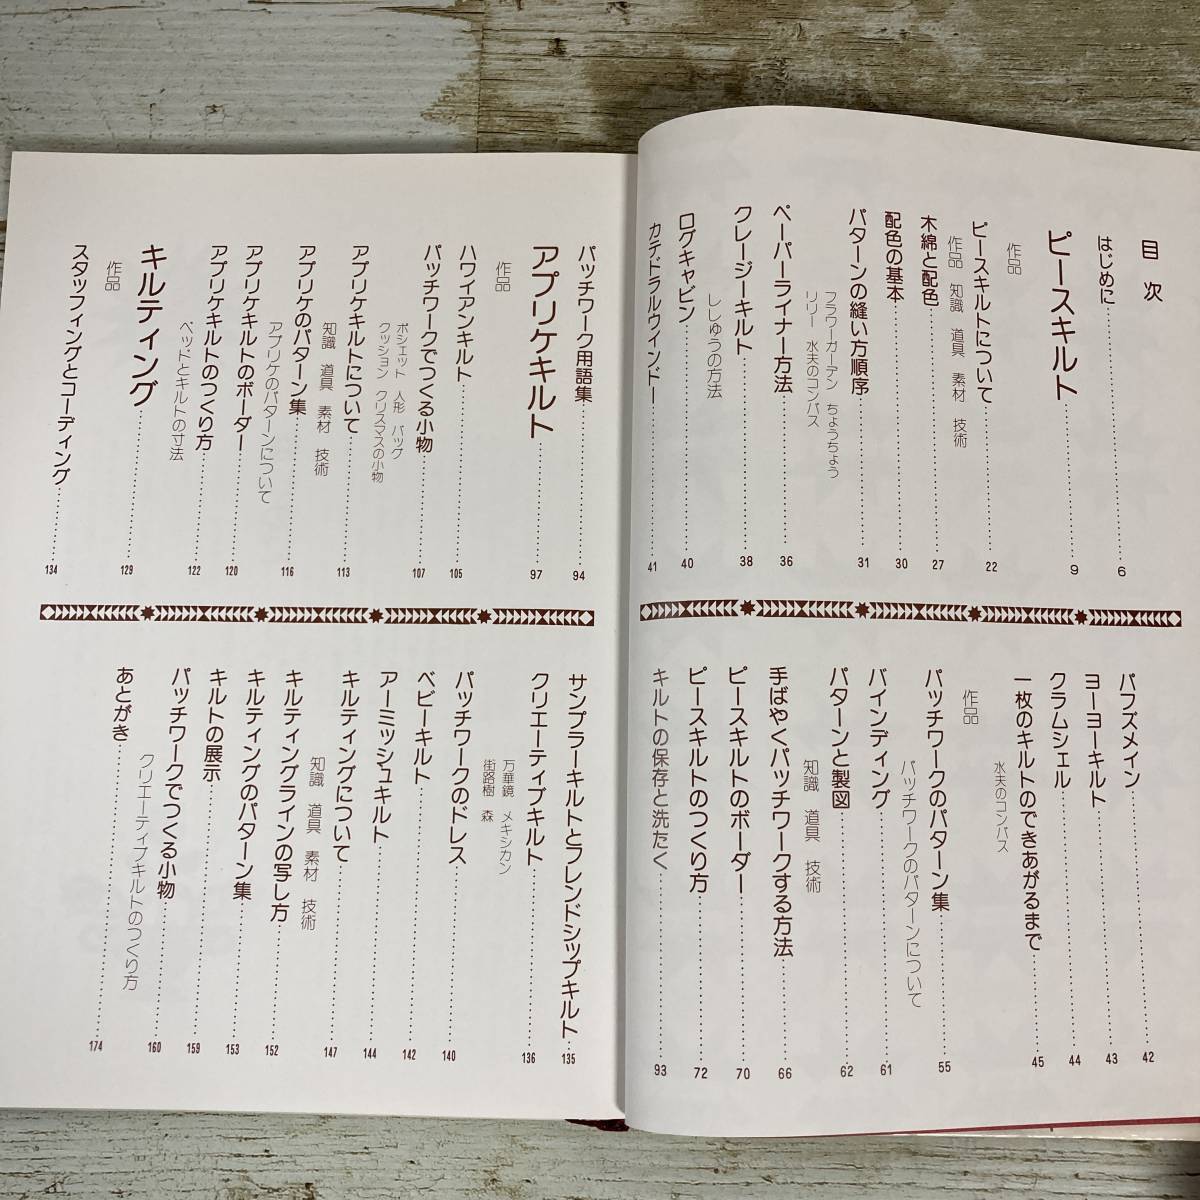 目次
はじめに……6
ピースキルト……9
作品
ピースキルトについて……22
作品 知識 道具 素材 技術
木綿と配色……27
配色の基本……30
パターンの縫い方順序……31
フラワーガーデン ちょうちょう
リリー 水夫のコンパス
ペーパーライナー方法……36
クレージーキルト……38
ししゅうの方法
ログキャビン……40
カテドラルウインドー……41
パフズメイン……42
ヨーヨーキルト……43
クラムシェル……44
一枚のキルトのできあがるまで……45
水夫のコンパス
作品
パッチワークのパターン集……55
パッチワークのパターンについて
バインディング……61
パターンと製図……62
知識 道具 技術
手ばやくパッチワークする方法……66
ピースキルトのボーダー……70
ピースキルトのつくり方……72
キルトの保存と洗たく……93
パッチワーク用語集……94
アプリケキルト……97
作品
ハワイアンキルト……105
パッチワークでつくる小物……107
ポシェット 人形 バッグ
クッション クリスマスの小物
アプリケキルトについて……113
知識 道具 素材 技術
アプリケのパターン集……116
アプリケのパターンについて
アプリケキルトのボーダー……120
アプリケキルトのつくり方……122
ベッドとキルトの寸法
キルティング……129
作品
スタッフィングとコーディング……134
サンプラーキルトとフレンドシップキルト……135
クリエーティブキルト……136
万華鏡 メキシカン
街路樹 森
パッチワークのドレス……140
ベビーキルト……142
アーミッシュキルト……144
キルティングについて……147
知識 道具 素材 技術
キルティングラインの写し方……152
キルティングのパターン集……153
キルトの展示……159
パッチワークでつくる小物……160
クリエーティブキルトのつくり方
あとがき……174